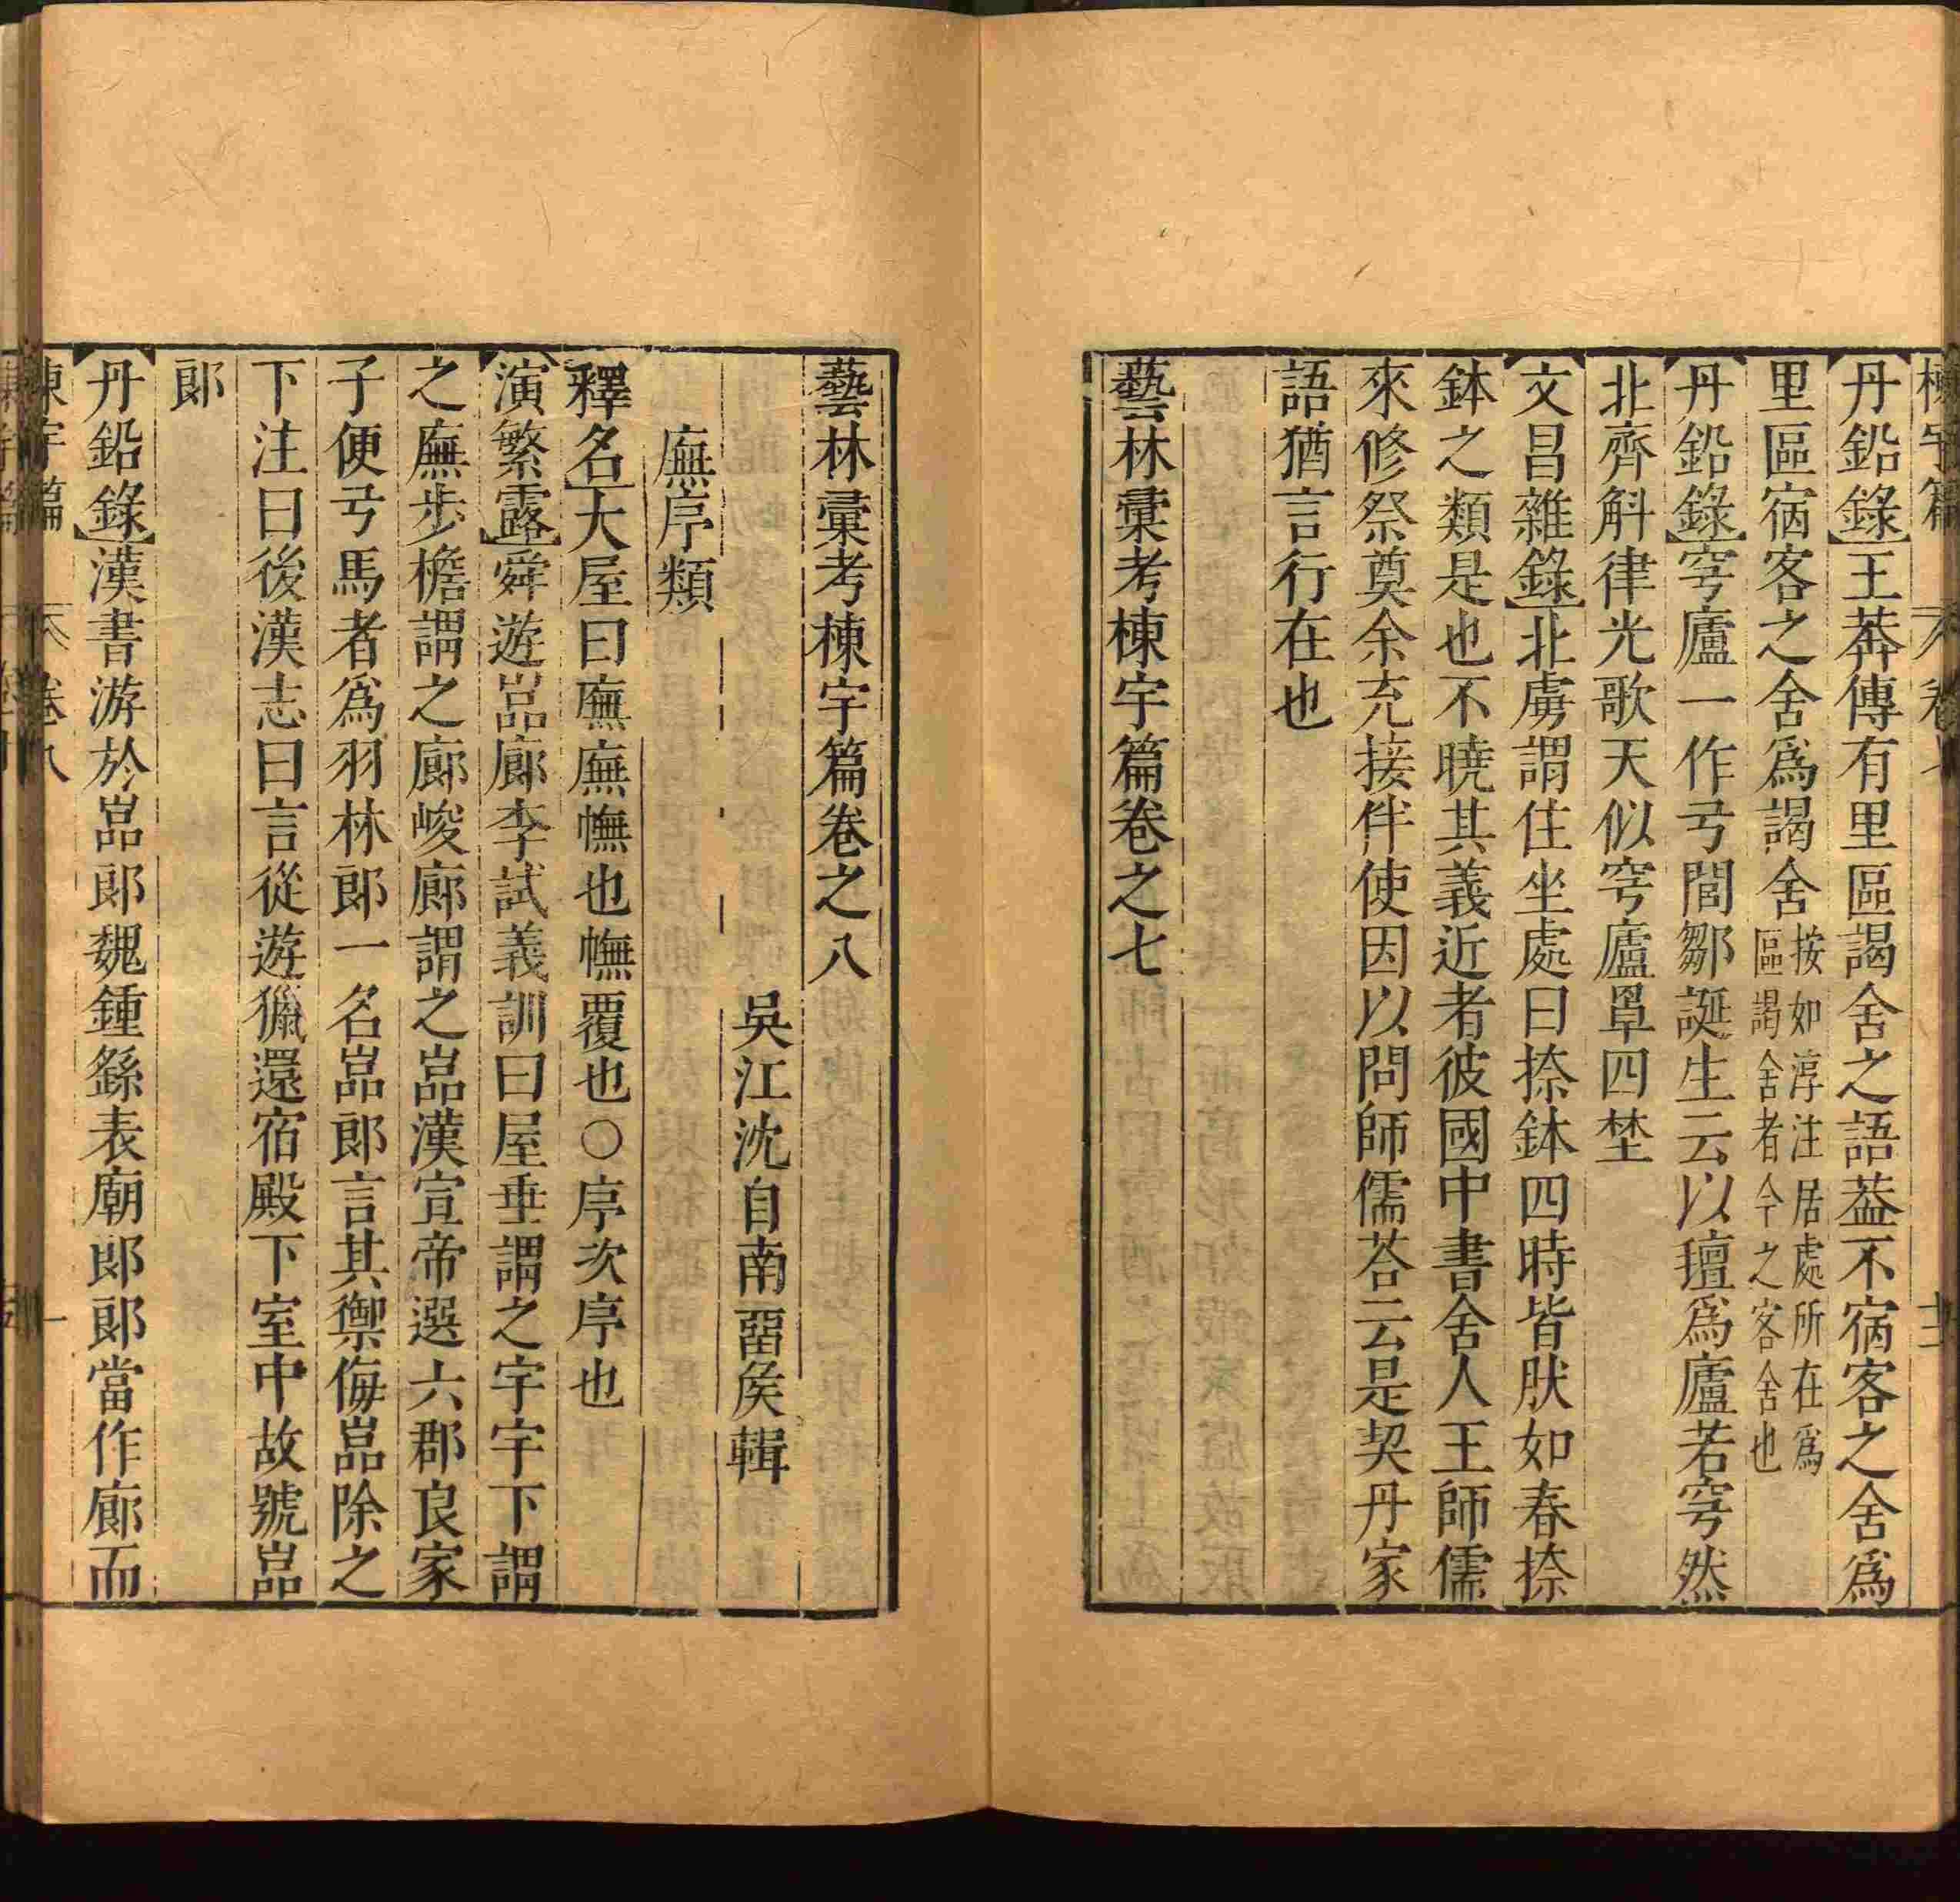 丹鉛錄王莽傳有里區謁舍之語葢不宿客之舍爲
里區宿客之舍爲謁舍按如淳注居處所在爲區謁舍者今之客舍也
丹鉛錄穹廬一作弓閭鄒誕生云以氊爲廬若穹然
北齊斛律光歌天似穹廬罩四埜
文昌雜錄北虜謂住坐處曰捺鉢四時皆肰如春捺
鉢之類是也不曉其義近者彼國中書舍人王師儒
來修祭奠余充接伴使因以問師儒荅云是契丹家
語猶言行在也
藝林彙考棟宇篇卷之七
藝林彙考棟宇篇卷之八
吳江沈自南畱矦輯
廡序類
釋名大屋曰廡廡幠也幠覆也〇序次序也
演繁露舜遊巖廊李試義訓曰屋垂謂之宇宇下謂
之廡步檐謂之廊峻廊謂之巖漢宣帝選六郡良家
子便弓馬者爲羽林郎一名巖郎言其禦侮巖除之
下注曰後漢志曰言從遊獵還宿殿下室中故號巖
郎
丹鉛錄漢書游於巖郎魏鍾繇表廟郎郎當作廊而
棟宇篇 卷八 一